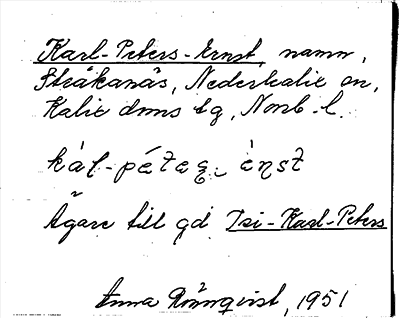 Karl-Peters-Ernst, namn,
Stråkanäs, Nederkalix sn,
Kalix dms tg, Norrb. l.
kál-péteṣ- ènst
Ägare till gd Isi-Karl-Peters
Anna Rönnqvist, 1951